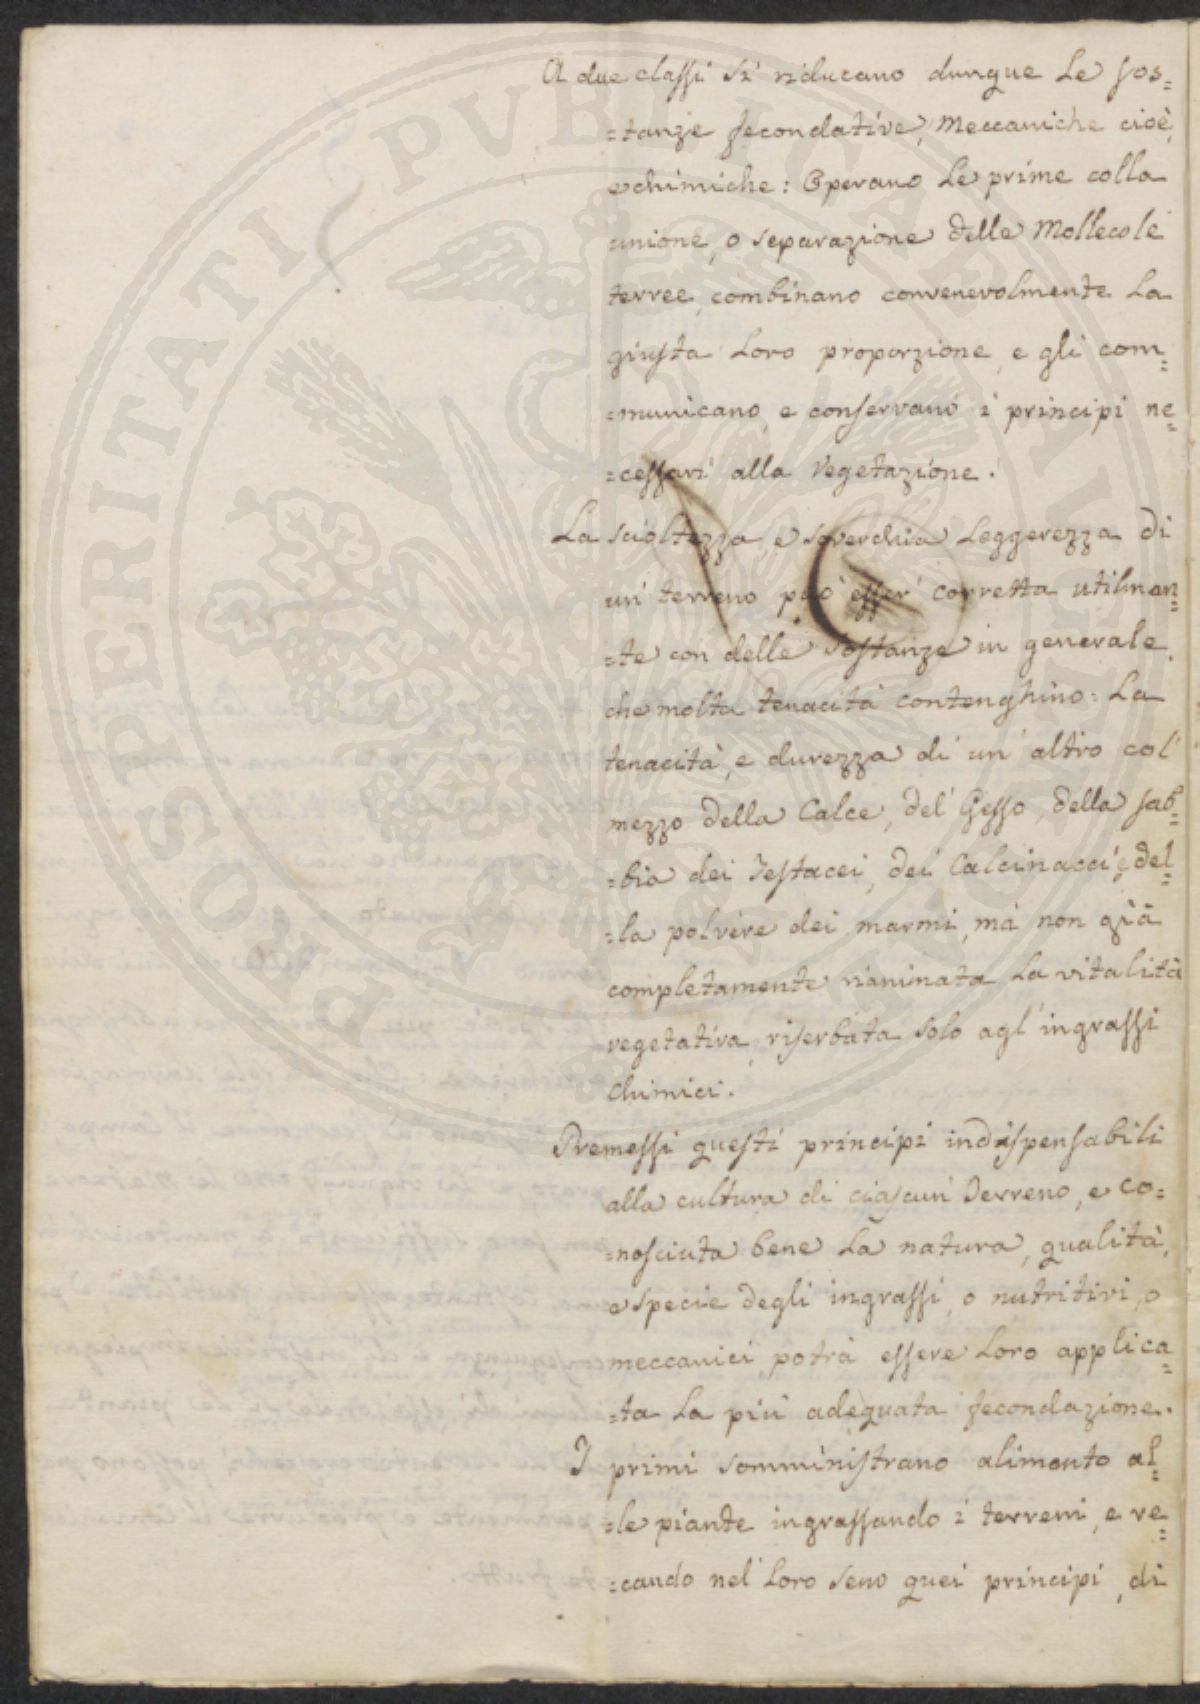 A due classi si riducano dunque le sos=
=tanze fecondative, meccaniche cioè,
e chimiche: Operano le prime colla
unione, o separazione delle Mollecole
terree, combinano convenevolmente la
giusta loro proporzione, e gli com=
=municano, e conservano i principi ne=
=cessari alla vegetazione.
La scioltezza, e soverchia leggerezza di
un' terreno può esser' corretta utilmen=
=te con delle sostanze in generale,
che molta tenacità contenghino: La
tenacità, e durezza di un' altro col'
mezzo della Calce, del' Gesso, della sab=
=bia dei Testacei, dei Calcinacci, e del=
=la polvere dei marmi, mà non già
completamente rianinata la vitalità
vegetativa, riserbata solo agl' ingrassi
chimici.
Premessi questi principi indispensabili
alla cultura di ciascun' Terreno, e co=
=nosciuta bene la natura, qualità,
e specie degli ingrassi, o nutritivi, o
meccanici, potrà essere loro applica=
=ta la più adequata fecondazione.
I primi somministrano alimento al=
=le piante ingrassando i terreni, e re=
=cando nel' loro seno quei principi, di
PROSPERITATI PVBLICAE AVGENDAE